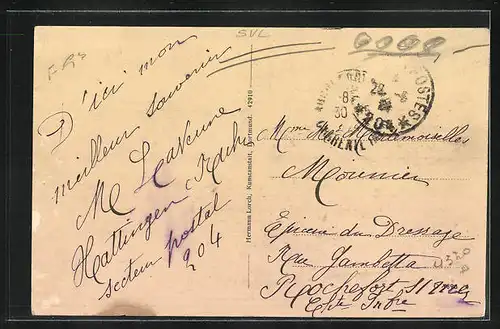 SVL
D'ici mon
meilleur souvenir
M Lavenne
Hattingen Ruhr
secteur postal
204
Hermann Lorch, Kunstanstalt, Dortmund. 42910
POSTES
204
Mme et Mesdemoiselles
Mounier
Epicerie du Dressage
Rue Gambetta
Rochefort s/ mer
Chte Infre